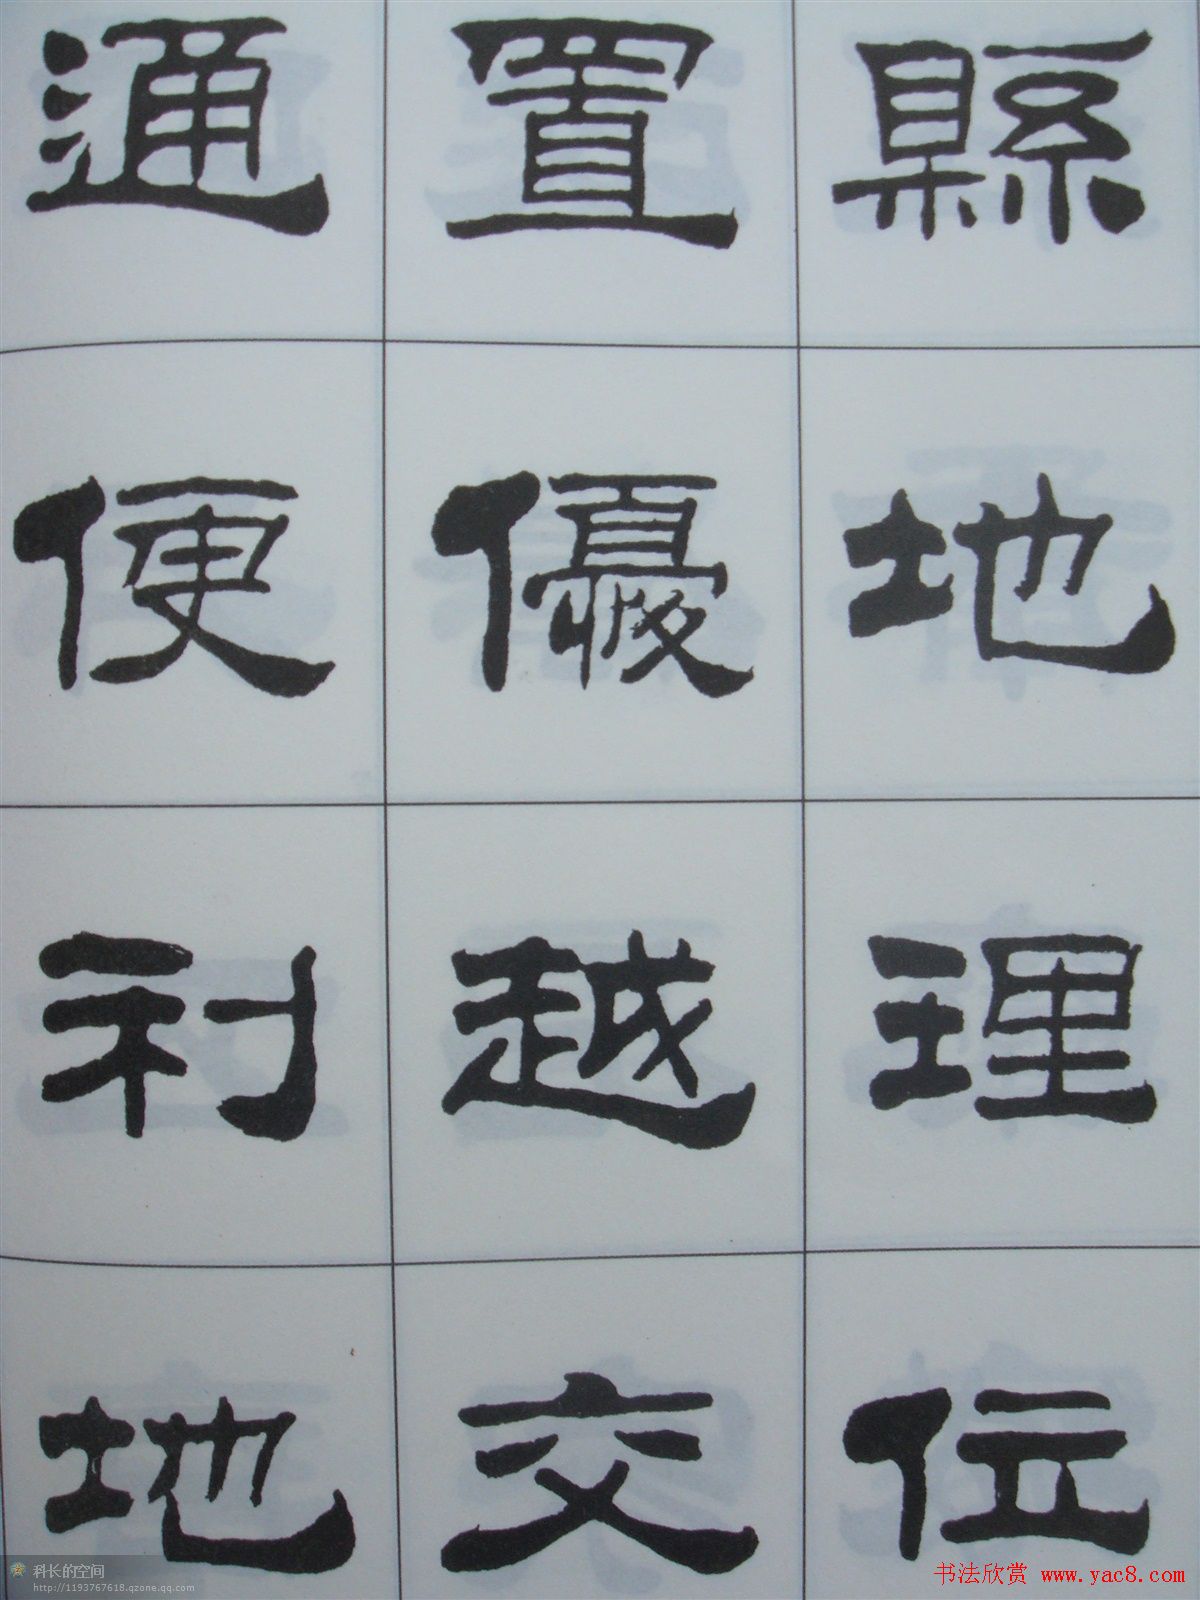 縣地理位
置優越交
通便利地
科长的空间
http://1193767618.qzone.qq.com
书法欣赏 www.yac8.com